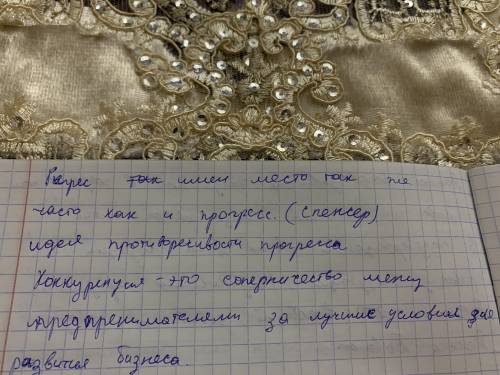 Регрес так имел место так же
часто как и прогресс. (Спенсер)
идея противоресивости прогресса
Конкуренция - это соперничество между
предпренимателями за лучшие условия для
развития бизнеса.